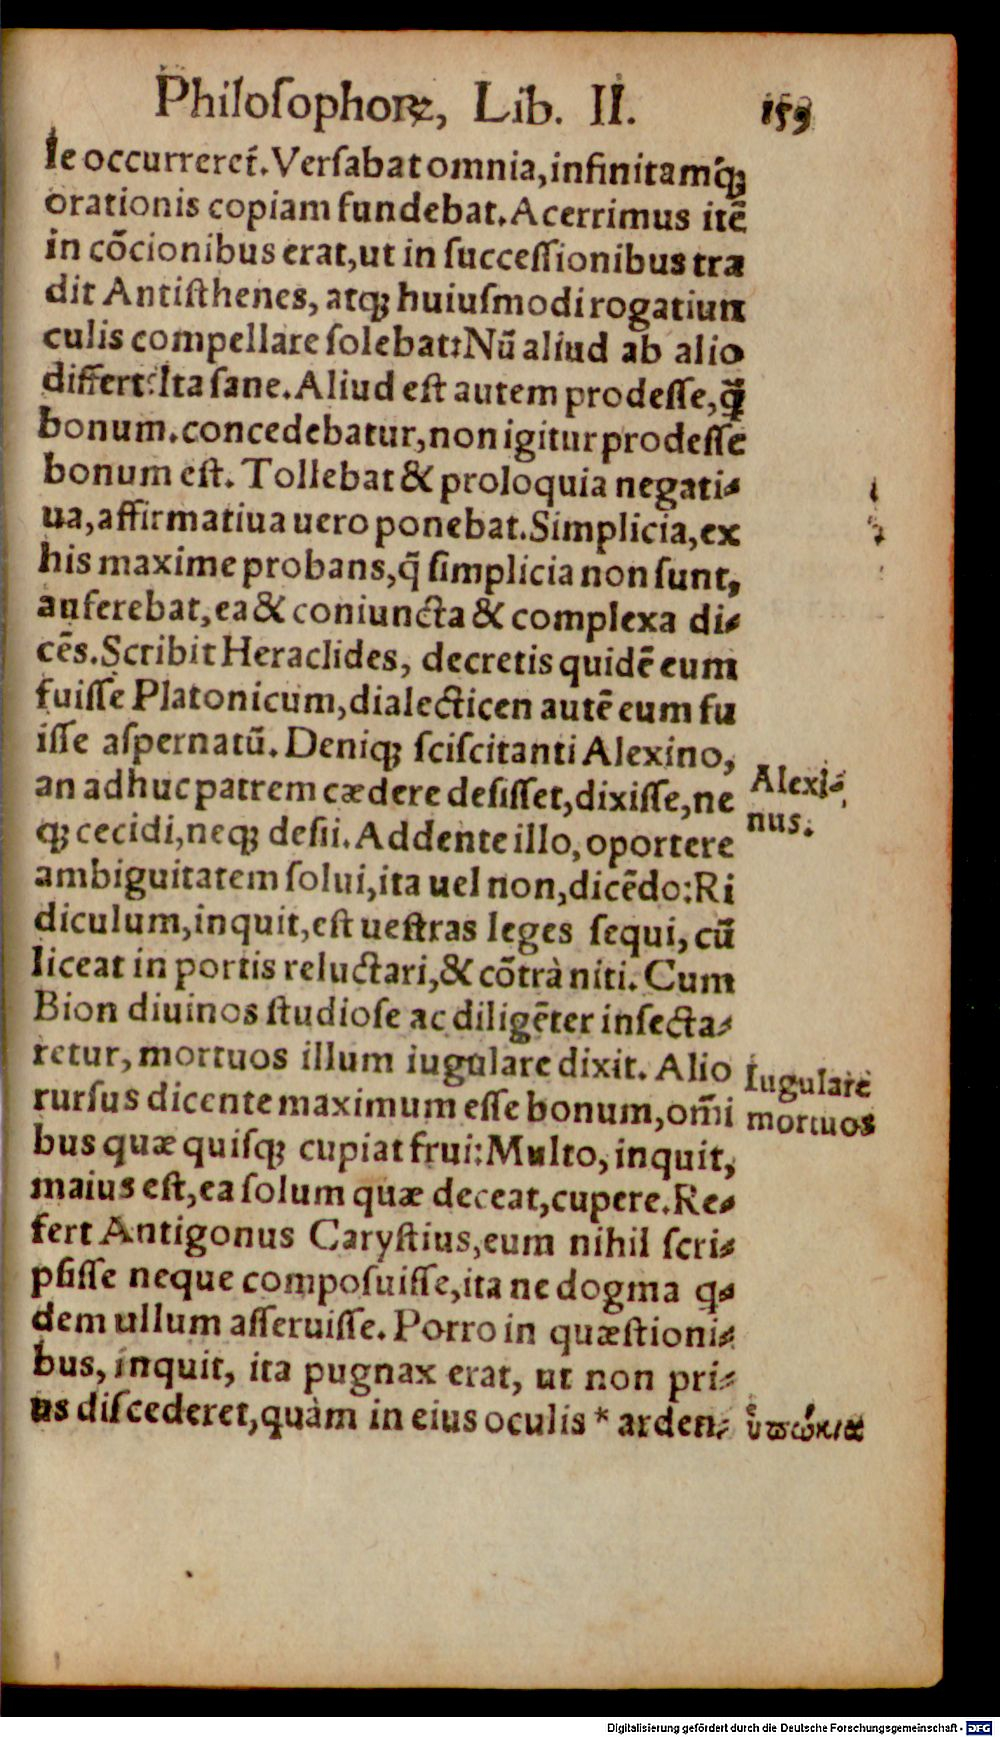 Philosophoꝝ, Lib. II. 159
se occurreret̃. Versabat omnia, infinitamq́ꝫ
orationis copiam fundebat. Acerrimus itẽ
in cõcionibus erat, ut in successionibus tra
dit Antisthenes, atqꝫ huiusmodi rogatiun
culis compellare solebat: Nũ aliud ab alio
differt? Ita sane. Aliud est autem prodesse, q̃ꝫ
bonum. concedebatur, non igitur prodesse
bonum est. Tollebat & proloquia negati-
ua, affirmatiua uero ponebat. Simplicia, ex
his maxime probans, q̃ simplicia non sunt,
auferebat, ea & coniuncta & complexa di-
cẽs. Scribit Heraclides, decretis quidẽ eum
fuisse Platonicum, dialecticen autẽ eum fu
isse aspernatũ. Deniqꝫ sciscitanti Alexino,
an adhuc patrem cædere desisset, dixisse, ne
qꝫ cecidi, neqꝫ desii. Addente illo, oportere
ambiguitatem solui, ita uel non, dicẽdo: Ri
diculum, inquit, est uestras leges sequi, cũ
liceat in portis reluctari, & cõtrà niti. Cum
Bion diuinos studiose ac diligẽter insecta-
retur, mortuos illum iugulare dixit. Alio
rursus dicente maximum esse bonum, om̃i
bus quæ quisqꝫ cupiat frui: Multo, inquit,
maius est, ea solum quæ deceat, cupere. Re-
fert Antigonus Carystius, eum nihil scri-
psisse neque composuisse, ita ne dogma q-
dem ullum asseruisse. Porro in quæstioni-
bus, inquit, ita pugnax erat, ut non pri-
us discederet, quàm in eius oculis * arden-
Alexi-
nus.
Iugulare
mortuos
ὑπώπια
Digitalisierung gefördert durch die Deutsche Forschungsgemeinschaft - DFG